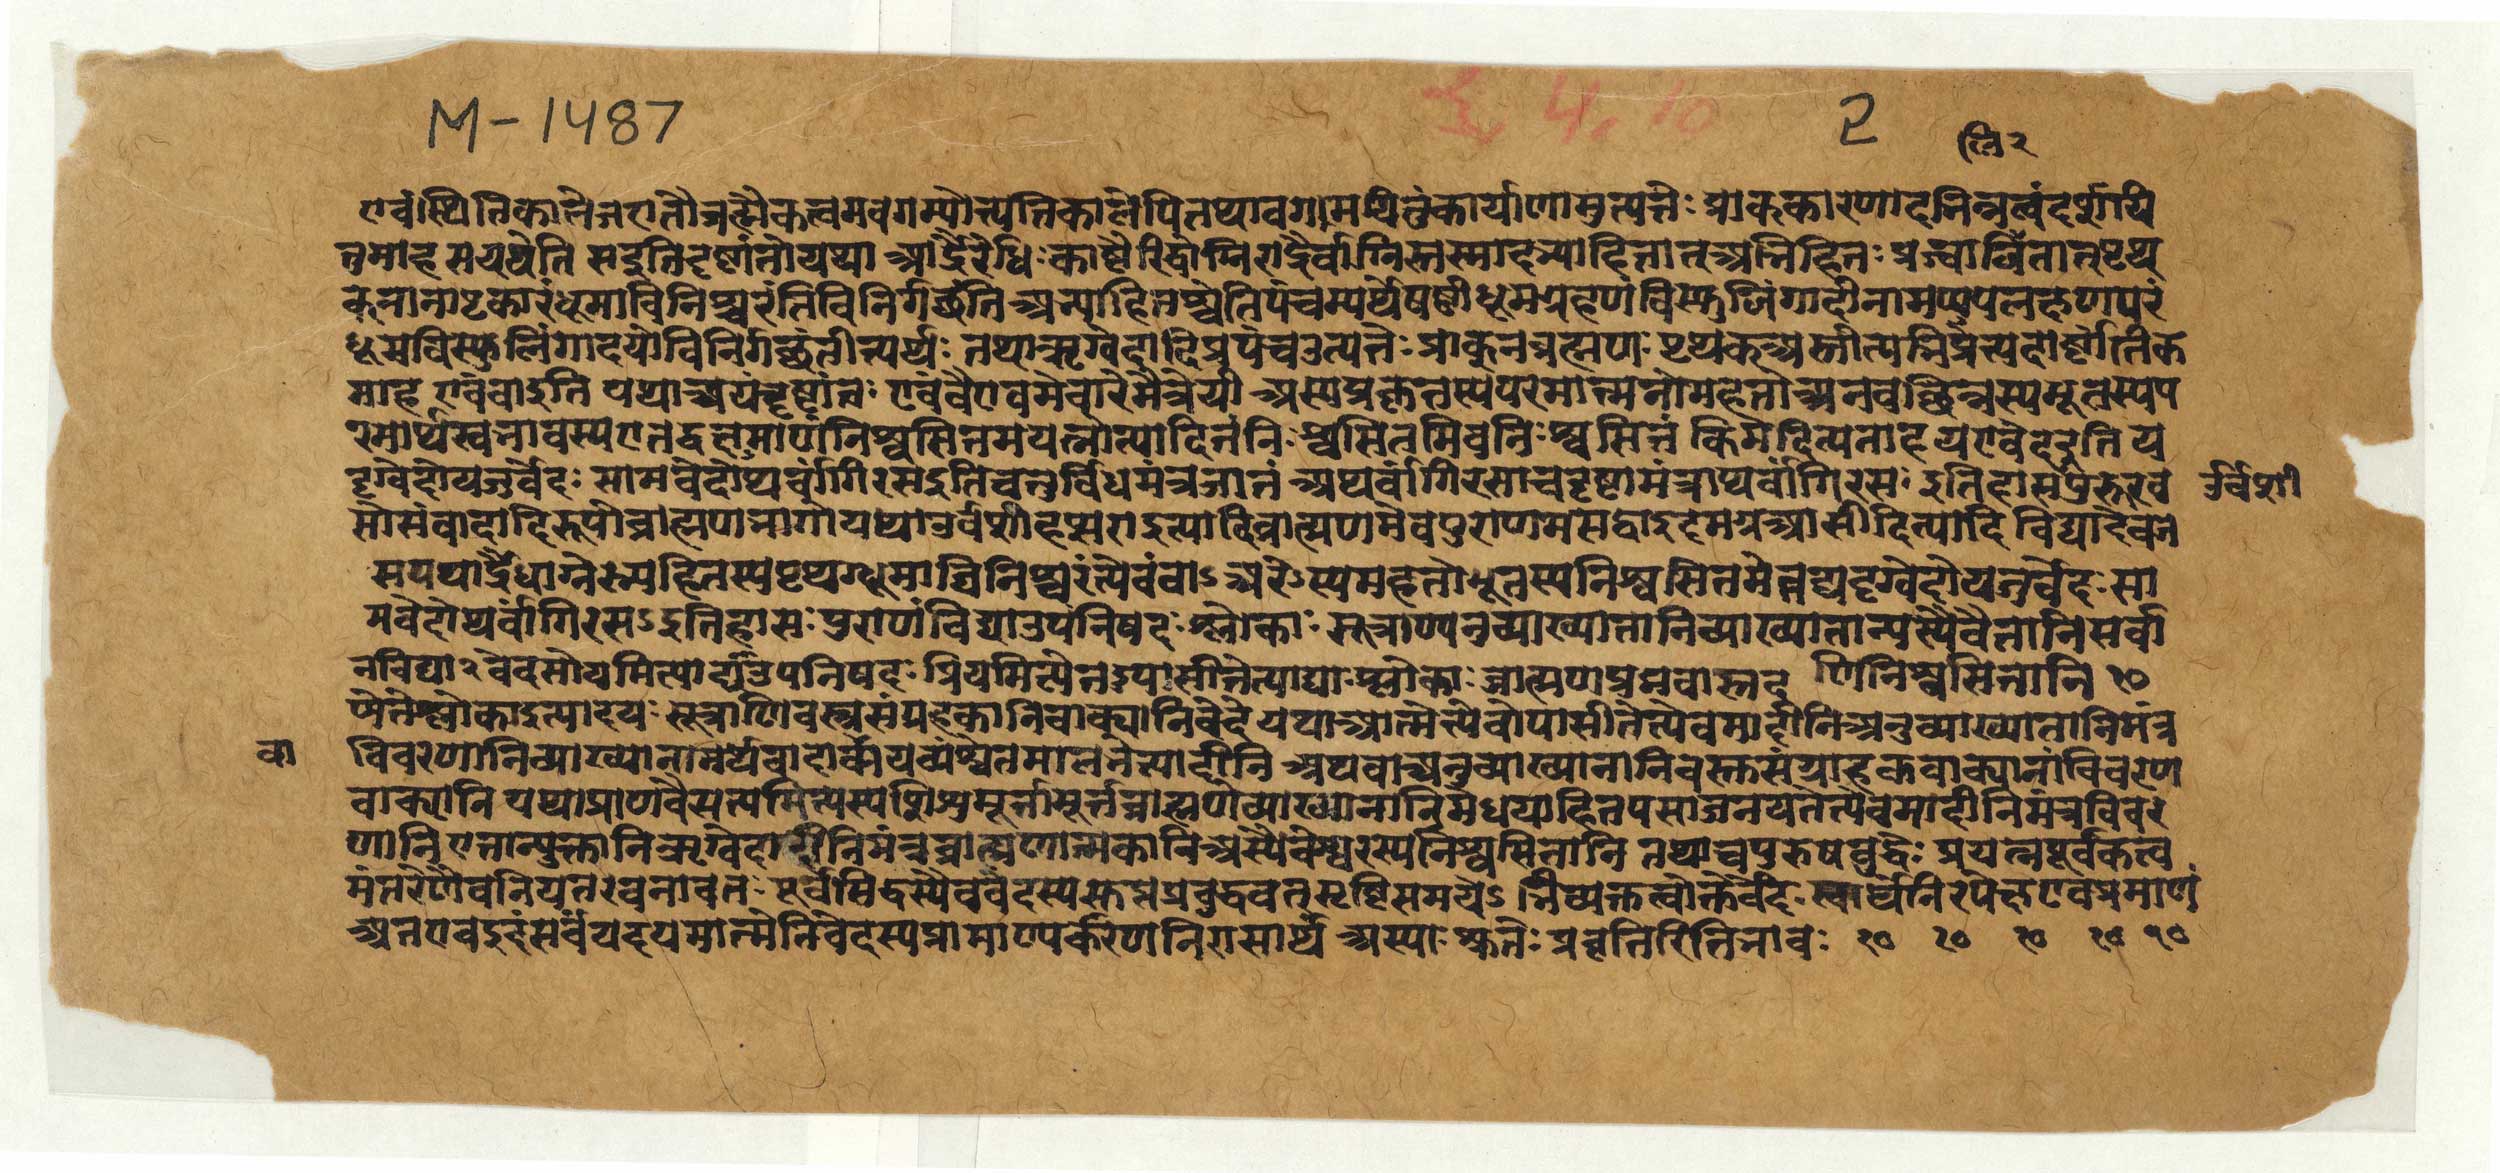 M-1487
3, 4, 10
2
एवंस्थितिकालेजगतोब्रह्मैकत्वमवगम्योत्पत्तिकालेपितथावगामयितुंकार्याणामुत्पत्तेः प्राक्कारणादभिन्नत्वंदर्शयि
तुमाह सयथेति सइतिदृष्टांतोयथा आर्द्रैरेधिःकाष्टैरिद्धोग्निरार्द्रैर्वाग्निस्तस्मादभ्याहितात्अभिहितः प्रज्वालितात्पृथ
क्नानाप्रकारंधूमाविनिश्चरंतिविनिर्गच्छंति अभ्याहितश्चेतिपंचम्यर्थेषष्ठीधूमग्रहणंविस्फुलिंगादीनामप्युपलक्षणपरं
धूमविस्फुलिंगादयोविनिर्गच्छंतीत्यर्थः तथाऋग्वेदादिप्रपंचउत्पत्तेः प्राक्नब्रह्मणः पृथक्अस्तीत्यभिप्रेत्यदार्ष्टांतिक
माह एवंवाइति यथाअयंदृष्टांतः एवंवैएवमेवारेमैत्रेयी अस्यप्रकृतस्यपरमात्मनोमहतोअनवच्छिन्नस्यभूतस्यप
रमार्थस्वभावस्यएतद्वक्ष्यमाणंनिश्वसितमयत्नोत्पादितंनिःश्वसितमिवनिःश्वसितं किंगदित्यताह यएवेदइति य
दृग्वेदोयजुर्वेदः सामवेदोथर्वांगिरसइतिचतुर्विधमंत्रजातं अथर्वांगिरसाचदृष्टामंत्राथर्वांगिरसः इतिहासपुरुरव
उर्वशी
सोसंवादादिरूपोब्राह्मणभागोयथाउर्वशीहप्सराइत्यादिब्राह्मणमेवपुराणमसद्वाइदमग्रआसीदित्यादि विद्यादेवज
सयथार्द्रैधाग्नेरभ्यहितस्यपृथग्धूमाविनिश्चरंत्येवंवाऽअरेऽस्यमहतोभूतस्यनिश्वसितमेतद्यदृग्वेदोयजुर्वेदःसा
मवेदोथर्वांगिरसऽइतिहासः पुराणंविद्याउपनिषदःश्लोकाः सूत्राण्यनुव्याख्यानानिव्याख्यानान्यस्यैवैतानिसर्वा
नविद्या२वेदसोयमित्याद्यउपनिषदः प्रियमित्येनदुपासीतेत्याद्याःश्लोकाः ब्राह्मणप्रभवास्तद णिनिश्वसितानि १०
प्येतेश्लोकाइत्यादयः सूत्राणिवस्तुसंग्रहकानिवाक्यानिवेदे यथाआत्मेत्येवोपासीतेत्येवमादीनिअनुव्याख्यानानिमंत्र
वा
विवरणानिव्याख्यानाम्अर्थवादार्वायव्यंश्वेतमालभेत्यादीनि अथवाअनुव्याख्यानानिवस्तुसंग्राहकवाक्यानांविवरण
वाक्यानि यथाप्राणवैसत्यमित्यस्यशिशुमूर्त्तामूर्त्तब्राह्मणेव्याख्यानानिमेधयाहितपसाजनयतेत्येवमादीनिमंत्रविवर
णानि एतान्युक्तानिऋग्वेदादीनिमंत्रब्राह्मणात्मकानिअस्यैवेश्वरस्यनिश्वसितानि तथाचपुरुषबुद्धेः प्रयत्नपूर्वकत्व
मंतरेणैवनियतरचनावतः पूर्वसिद्धस्यैववेदस्यसुप्तप्रबुद्धवत्सृष्टिसमयेऽभिव्यक्तत्वोक्तेर्वेदःस्वार्थेनिरपेक्षएवप्रमाणं
अतएवइदंसर्वंयदयमात्मेतिवेदस्यप्रामाण्यकरणनिरासार्थं अस्याःश्रुतेः प्रवृत्तिरितिभावः १० १० १० १० १०